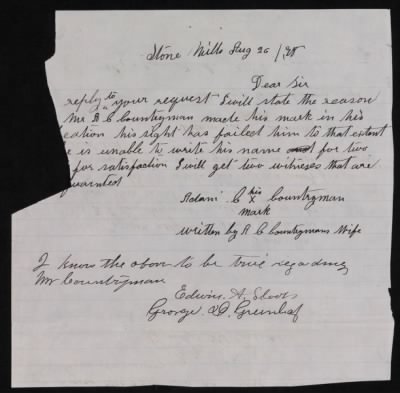 Stone Mills Aug 26 / 98
Dear Sir
reply to your request I will state the reason
Mr A C Countryman made his mark in his
eation his sight has failest him to that extent
e is unable to write his name for two
for satisfaction I will get two witneses that are
quainted
Adam C his x Countryman
mark
written by A C Countrymans Wife
I know the abov to be true regarding
Mr Countryman
Edwin A.
George D. Greenleaf